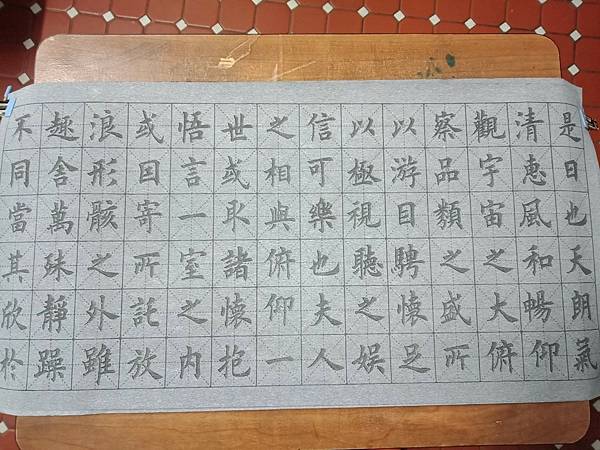 是日也天朗氣
清惠風和暢仰
觀宇宙之大俯
察品類之盛所
以游目騁懷足
以極視聽之娛
信可樂也夫人
之相與俯仰一
世或取諸懷抱
悟言一室之內
或因寄所託放
浪形骸之外雖
趣舍萬殊靜躁
不同當其欣於